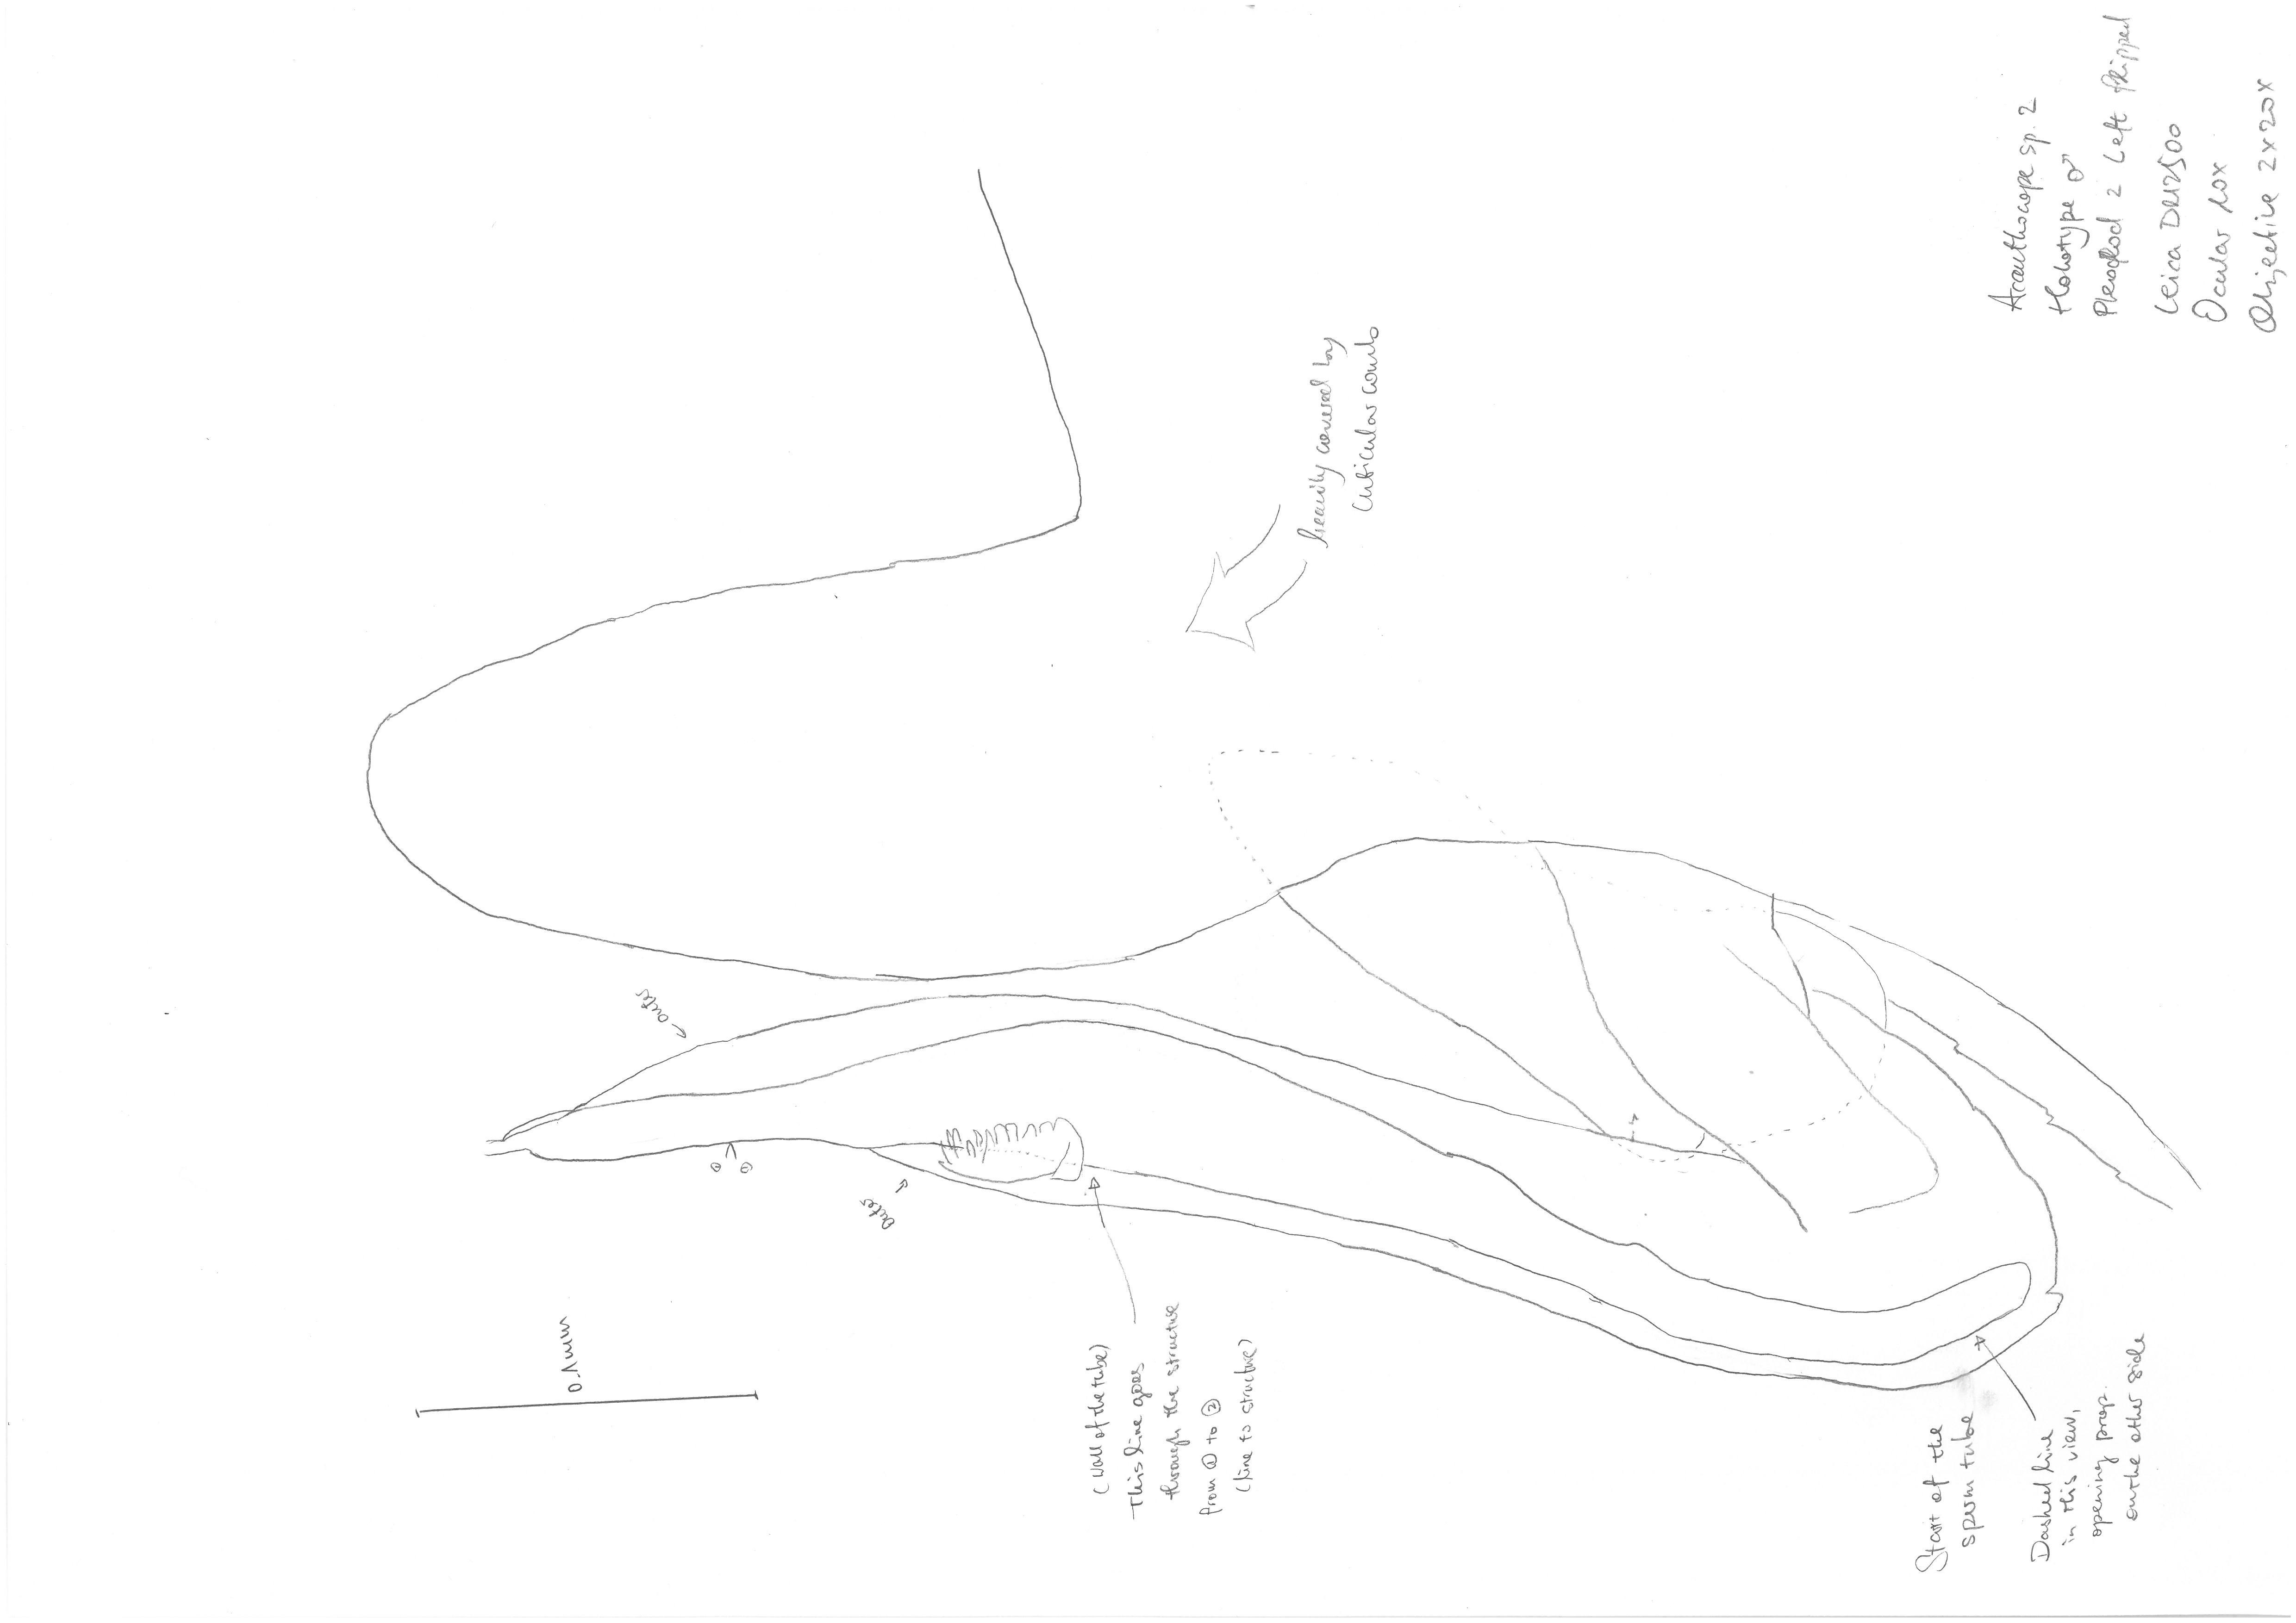 0.1mm
outer
outer
(wall of the tube)
This line goes
through the structure
from ① to ②
(line to structure)
heavily covered by
cuticular comb
Start of the
sperm tube
Dashed line
in this view,
opening prop.
on the other side
Acanthocope sp. 2
Holotype ♂
Pleopod 2 Left flipped
Leica DM2500
Ocular 10x
Objective 2x20x